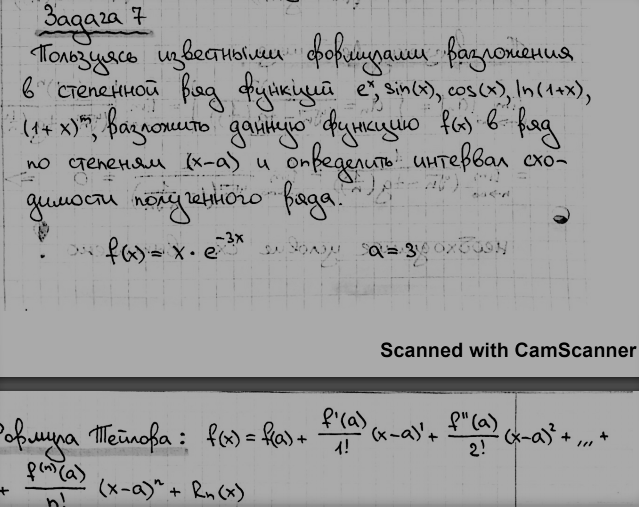 Задача 7
Пользуясь известными формулами разложения
в степенной ряд функций eˣ, sin(x), cos(x), ln(1+x),
(1+x)ᵐ, разложить данную функцию f(x) в ряд
по степеням (x-a) и определить интервал схо-
димости полученного ряда.
f(x) = x · e⁻³ˣ a = 3
Scanned with CamScanner
Формула Тейлора: f(x) = f(a) + f'(a)/1! (x-a)¹ + f''(a)/2! (x-a)² + ... +
+ f⁽ⁿ⁾(a)/n! (x-a)ⁿ + Rₙ(x)